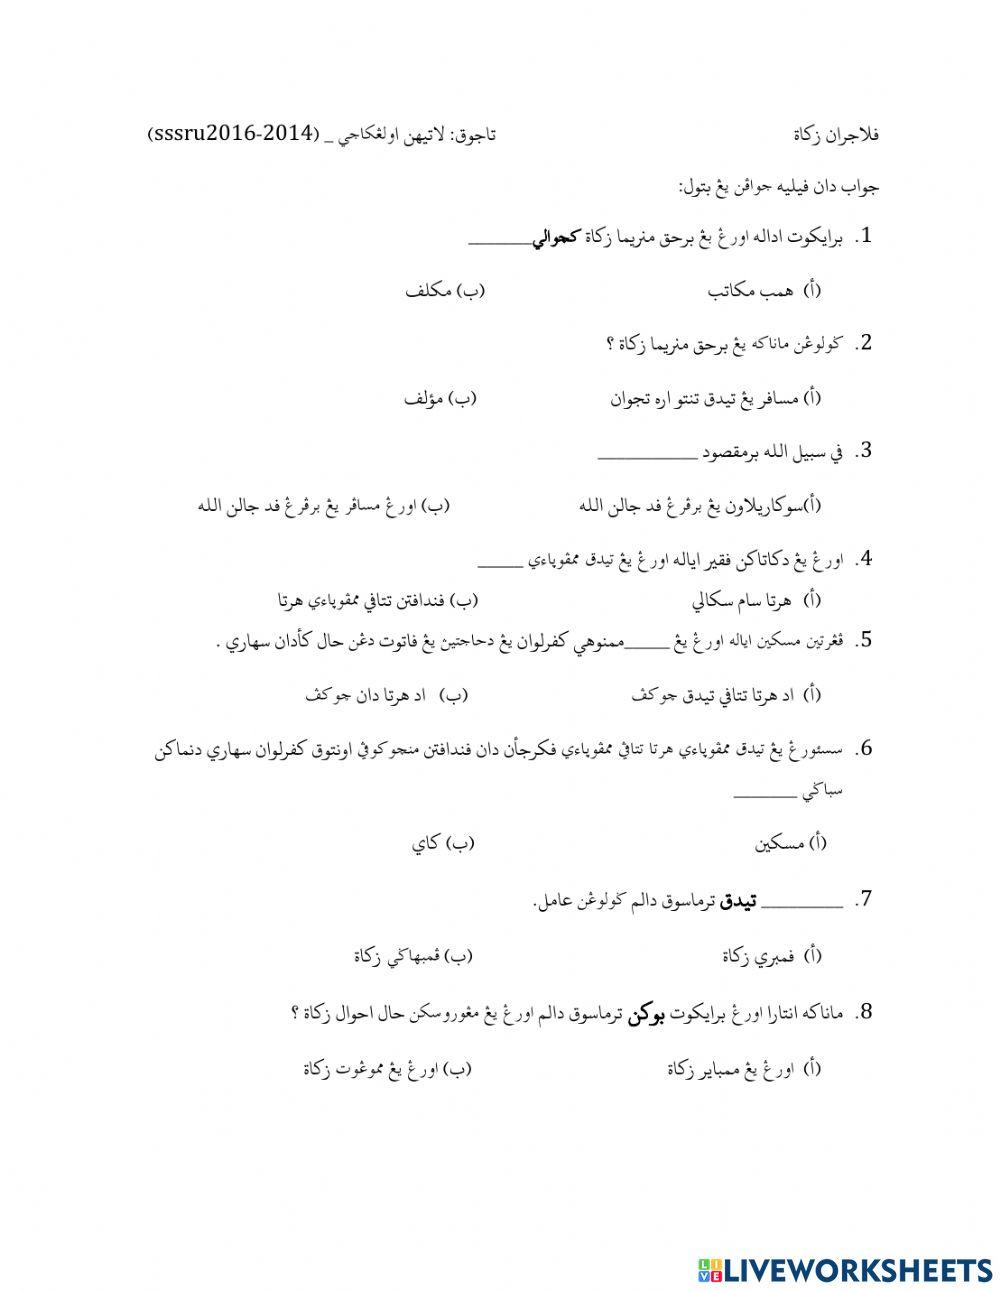 فلاجران زكاة تاجوق: لاتيهن اولڠكاجي _ (sssru2016-2014)
جواب دان فيليه جواڤن يڠ بتول:
1. برايكوت اداله اورڠ يڠ برحق منريما زكاة كجوالي_______
(أ) همب مكاتب (ب) مكلف
2. ݢولوڠن ماناكه يڠ برحق منريما زكاة ؟
(أ) مسافر يڠ تيدق تنتو اره تجوان (ب) مؤلف
3. في سبيل الله برمقصود ___________
(أ)سوكاريلاون يڠ برڤرڠ فد جالن الله (ب) اورڠ مسافر يڠ برڤرڠ فد جالن الله
4. اورڠ يڠ دكاتاكن فقير اياله اورڠ يڠ تيدق ممڤوياءي _____
(أ) هرتا سام سكالي (ب) فندافتن تتافي ممڤوياءي هرتا
5. ڤڠرتين مسكين اياله اورڠ يڠ _____ممنوهي كفرلوان يڠ دحاجتيڽ يڠ فاتوت دڠن حال كأدان سهاري .
(أ) اد هرتا تتافي تيدق جوكڤ (ب) اد هرتا دان جوكڤ
6. سسئورڠ يڠ تيدق ممڤوياءي هرتا تتافي ممڤوياءي فكرجأن دان فندافتن منجوكوفي اونتوق كفرلوان سهاري دنماكن
سباݢي _______
(أ) مسكين (ب) كاي
7. _________ تيدق ترماسوق دالم ݢولوڠن عامل.
(أ) فمبري زكاة (ب) ڤمبهاݢي زكاة
8. ماناكه انتارا اورڠ برايكوت بوكن ترماسوق دالم اورڠ يڠ مڠوروسكن حال احوال زكاة ؟
(أ) اورڠ يڠ ممباير زكاة (ب) اورڠ يڠ مموڠوت زكاة
LIVEWORKSHEETS